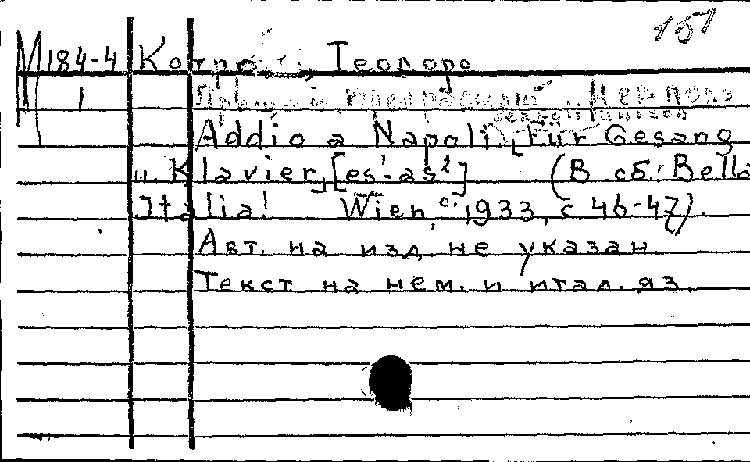 151
М 184-4 Котро Теодоро
1 Прощай, мой Неаполь
Addio a Napoli, [für Gesang
u. Klavier], [es¹-as²] (В сб.: Bella
Italia! Wien, c. 1933, с 46-47).
Авт. на изд. не указан.
Текст на нем. и итал. яз.